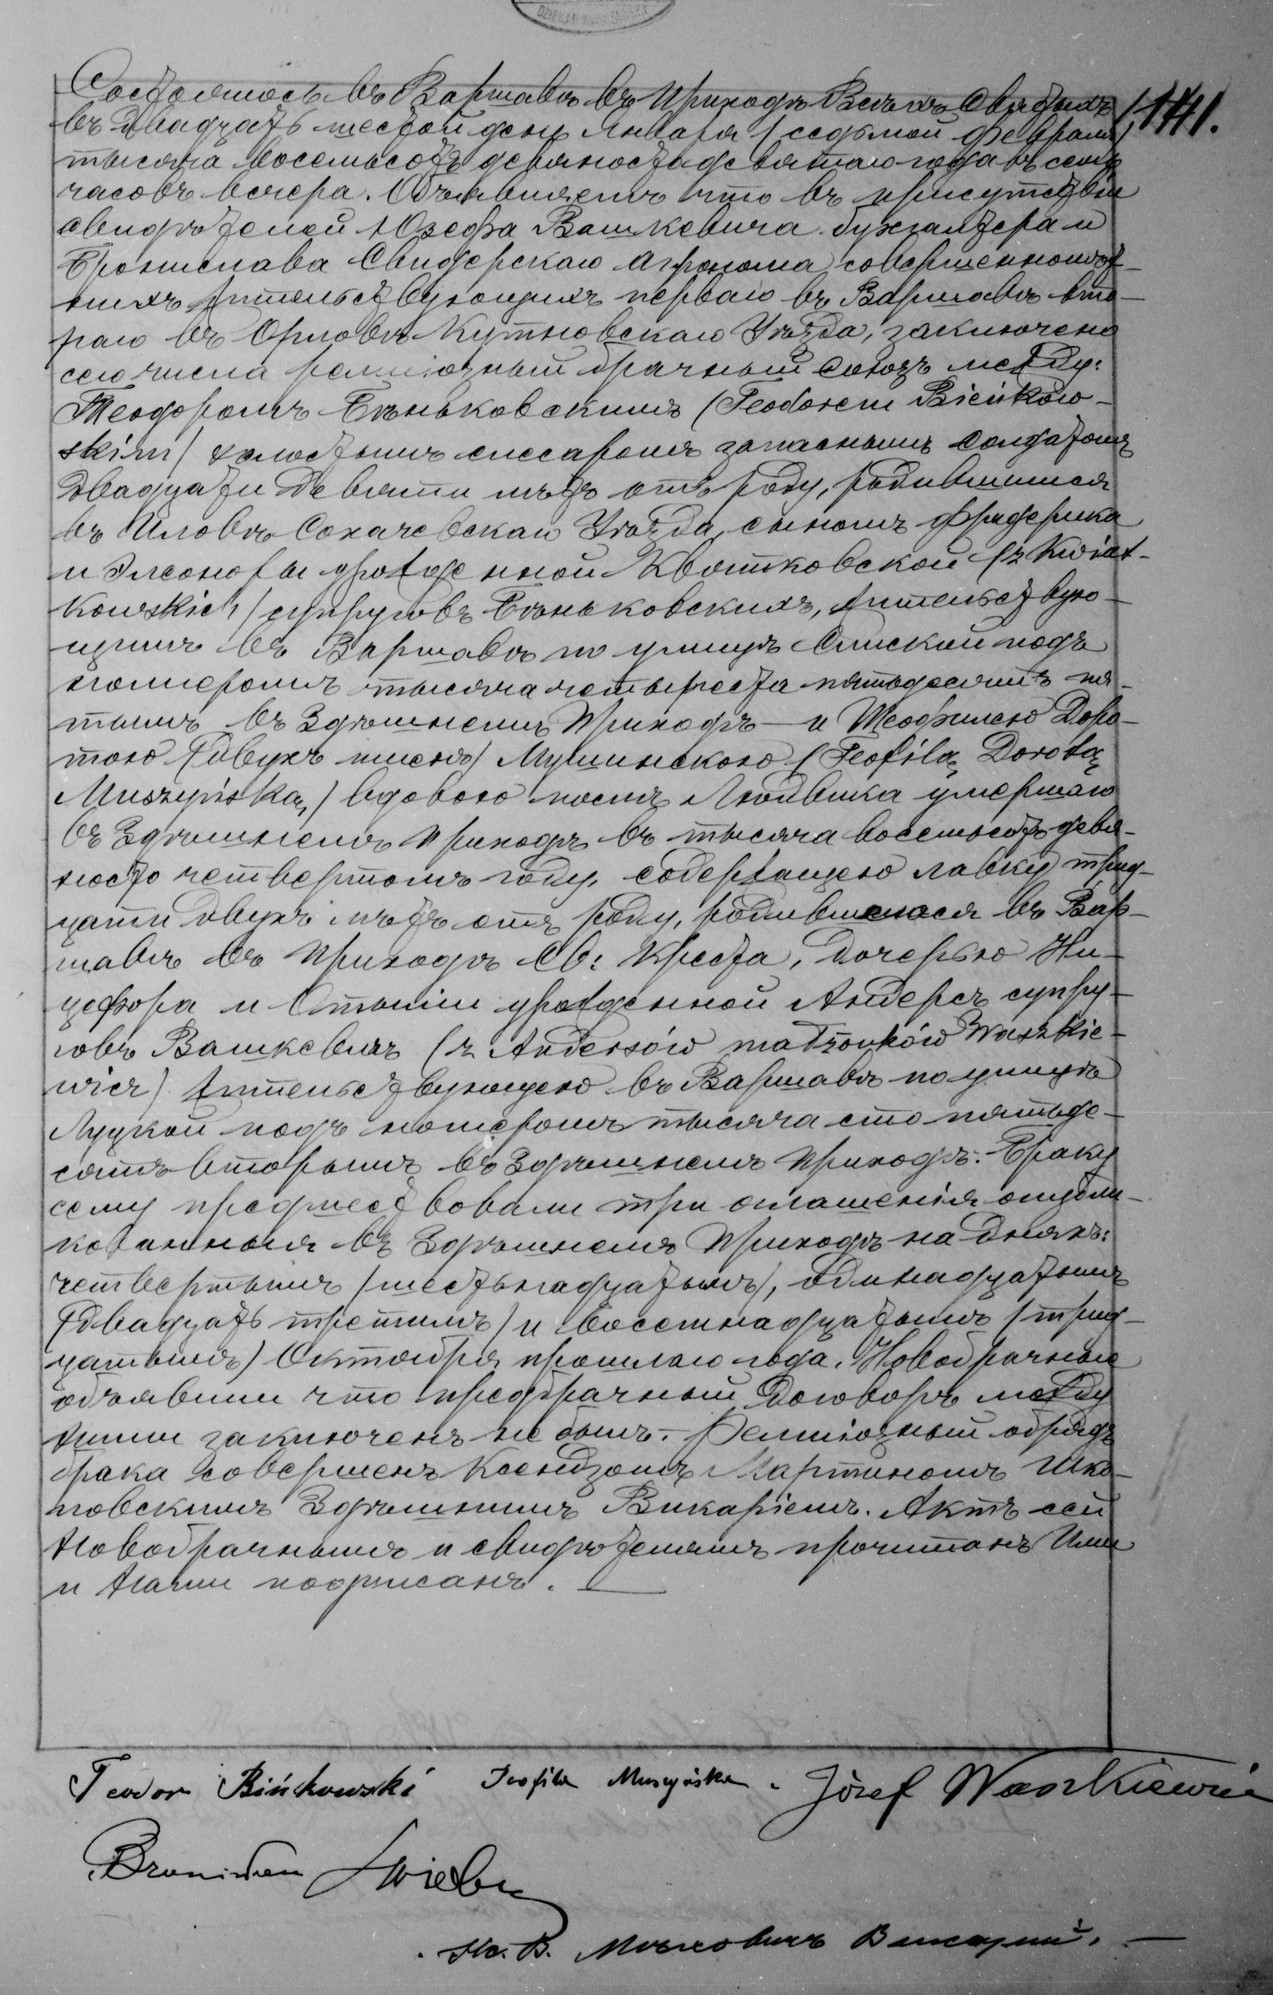 DZIEKAN WARSZAWSKI
141.
Состоялось въ Варшавѣ въ приходѣ Всѣхъ Святыхъ
въ двадцать шестой день Января /седьмой Февраля/
тысяча восемьсотъ девяностадевятаго года въ семь
часовъ вечера. Объявляемъ что въ присутствіи
свидѣтелей Юзефа Вашкевича бухгалтера и
Бронислава Свидерскаго агронома совершеннолѣт-
нихъ жительствующихъ перваго въ Варшавѣ вто-
раго въ Орловѣ Кутновскаго Уѣзда, заключено
сего числа религіозный брачный союзъ между:
Теодоромъ Бѣньковскимъ (Teodorem Bieńkow-
skim) холостымъ слесаремъ запаснымъ солдатомъ
двадцати девяти лѣтъ отъ роду, родившимся
въ Иловѣ Сохачевскаго Уѣзда, сыномъ Фридерика
и Элеоноры урожденной Квятковской (z Kwiat-
kowskich) супруговъ Бѣньковскихъ, жительствую-
щимъ въ Варшавѣ по улицѣ Слиской подъ
номеромъ тысяча четыреста пятьдесятъ пя-
тымъ въ здѣшнемъ приходѣ – и Теофилею Доро-
тою (двухъ именъ) Мушинскою (Teofilą Dorotą
Muszyńską) вдовою послѣ Людвика умершаго
въ здѣшнемъ приходѣ въ тысяча восемьсотъ девя-
носто четвертомъ году, содержащею лавку трид-
цати двухъ лѣтъ отъ роду, родившеюся въ Вар-
шавѣ въ приходѣ Св: Креста, дочерью Ни-
цефора и Отыліи урожденной Андерсъ супру-
говъ Вашкевичъ (z Andersów małżonków Waszkie-
wicz) жительствующею въ Варшавѣ по улицѣ
Луцкой подъ номеромъ тысяча сто пятьде-
сятъ вторымъ въ здѣшнемъ приходѣ. Браку
сему предшествовали три оглашенія опубли-
кованныя въ здѣшнемъ приходѣ на дняхъ:
четвертымъ /шестьнадцатымъ/, одинадцатымъ
/двадцать третимъ/ и восемнадцатымъ /трид-
цатымъ/ Октября прошлаго года. Новобрачные
объявили что предбрачный договоръ между
ними заключенъ не былъ. Религіозный обрядъ
брака совершенъ Ксендзомъ Мартиномъ Шко-
повскимъ здѣшнимъ Викаріемъ. Актъ сей
Новобрачнымъ и свидѣтелямъ прочитанъ Ими
и Нами подписанъ.
Teodor Bińkowski Teofila Muszyńska. Józef Waszkiewicz
Bronisław
Кс. В.